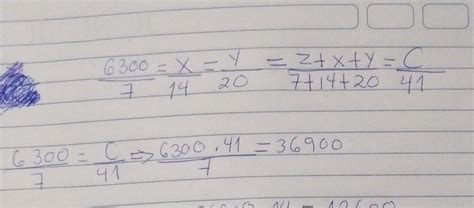 6300/7 = X/14 = Y/20 = Z+X+Y/7+14+20 = C/41
6300/7 = C/41 => 6300.41/7 = 36900